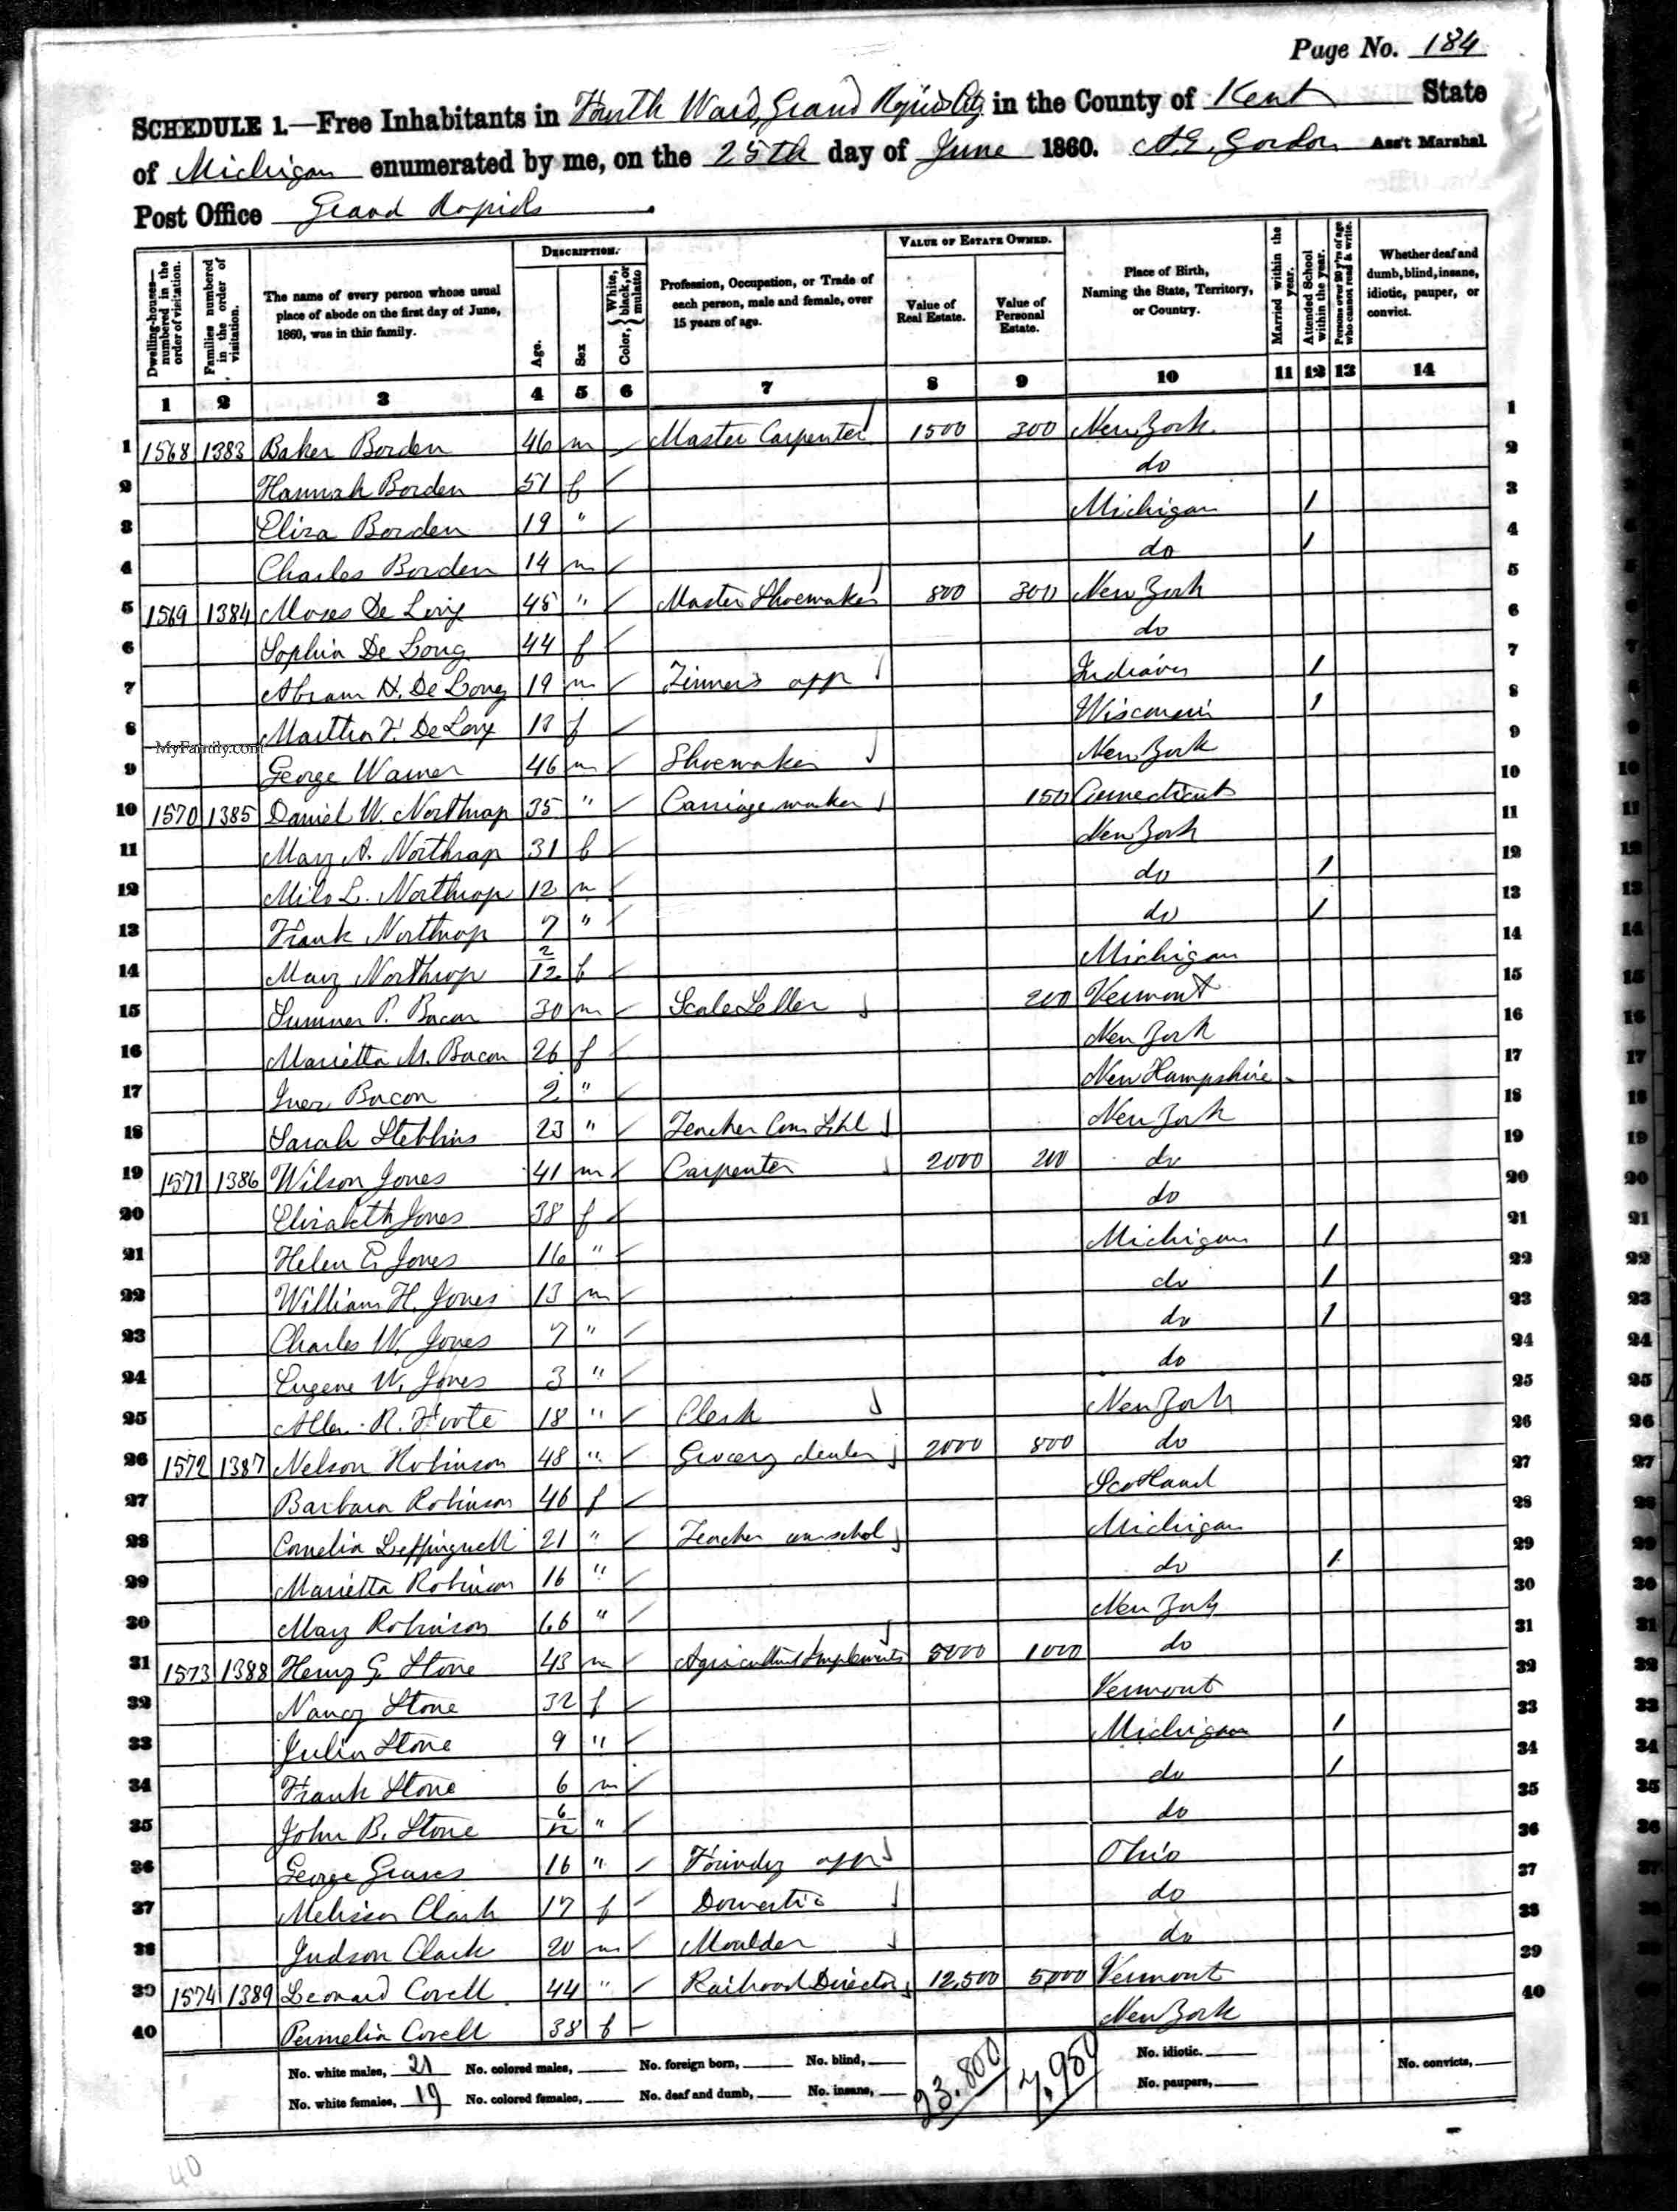 Page No. 184
SCHEDULE 1.—Free Inhabitants in Fourth Ward, Grand Rapids City in the County of Kent State
of Michigan enumerated by me, on the 25th day of June 1860. A.E. Gordon Ass't Marshal
Post Office Grand Rapids.
Dwelling-houses—numbered in the order of visitation.
Families numbered in the order of visitation.
The name of every person whose usual place of abode on the first day of June, 1860, was in this family.
DESCRIPTION.
Age.
Sex
Color, { White, black, or mulatto
Profession, Occupation, or Trade of each person, male and female, over 15 years of age.
VALUE OF ESTATE OWNED.
Value of Real Estate.
Value of Personal Estate.
Place of Birth, Naming the State, Territory, or Country.
Married within the year.
Attended School within the year.
Persons over 20 y'rs of age who cannot read & write.
Whether deaf and dumb, blind, insane, idiotic, pauper, or convict.
1 2 3 4 5 6 7 8 9 10 11 12 13 14
1 1568 1383 Baker Borden 46 m Master Carpenter 1500 300 New York 1
2 Hannah Borden 51 f do 2
3 Eliza Borden 19 " Michigan 1 3
4 Charles Borden 14 m do 1 4
5 1569 1384 Moses De Long 45 " Master Shoemaker 800 300 New York 5
6 Sophia De Long 44 f do 6
7 Abram H. De Long 19 m Tinner's app Indiana 1 7
8 Martha F. De Long 13 f Wisconsin 1 8
MyFamily.com
9 George Warner 46 m Shoemaker New York 9
10 1570 1385 Daniel W. Northrop 35 " Carriage maker 150 Connecticut 10
11 Mary A. Northrop 31 f New York 11
12 Milo L. Northrop 12 m do 1 12
13 Frank Northrop 7 " do 1 13
14 Mary Northrop 2/12 f Michigan 14
15 Sumner P. Bacon 30 m Scale Seller 200 Vermont 15
16 Marietta M. Bacon 26 f New York 16
17 Inez Bacon 2 " New Hampshire 17
18 Sarah Stebbins 23 " Teacher Com Schl New York 18
19 1571 1386 Wilson Jones 41 m Carpenter 2000 200 do 19
20 Elizabeth Jones 38 f do 20
21 Helen E. Jones 16 " Michigan 1 21
22 William H. Jones 13 m do 1 22
23 Charles W. Jones 7 " do 1 23
24 Eugene W. Jones 3 " do 24
25 Allen R. Foote 18 " Clerk New York 25
26 1572 1387 Nelson Robinson 48 " Grocery dealer 2000 800 do 26
27 Barbara Robinson 46 f Scotland 27
28 Cornelia Leffingwell 21 " Teacher com schol Michigan 28
29 Marietta Robinson 16 " do 1 29
30 Mary Robinson 66 " New York 30
31 1573 1388 Henry G. Stone 43 m Agricultural Implements 5000 1000 do 31
32 Nancy Stone 32 f Vermont 32
33 Julia Stone 9 " Michigan 1 33
34 Frank Stone 6 m do 1 34
35 John B. Stone 6/12 " do 35
36 George Graves 16 " Foundry app Ohio 36
37 Melissa Clark 17 f Domestic do 37
38 Judson Clark 20 m Moulder do 38
39 1574 1389 Leonard Covell 44 " Railroad Director 12,500 5,000 Vermont 39
40 Permelia Covell 38 f New York 40
No. white males, 21 No. colored males, No. foreign born, No. blind, 23.800 7,950 No. idiotic. No. convicts,
No. white females, 19 No. colored females, No. deaf and dumb, No. insane, No. paupers,
40